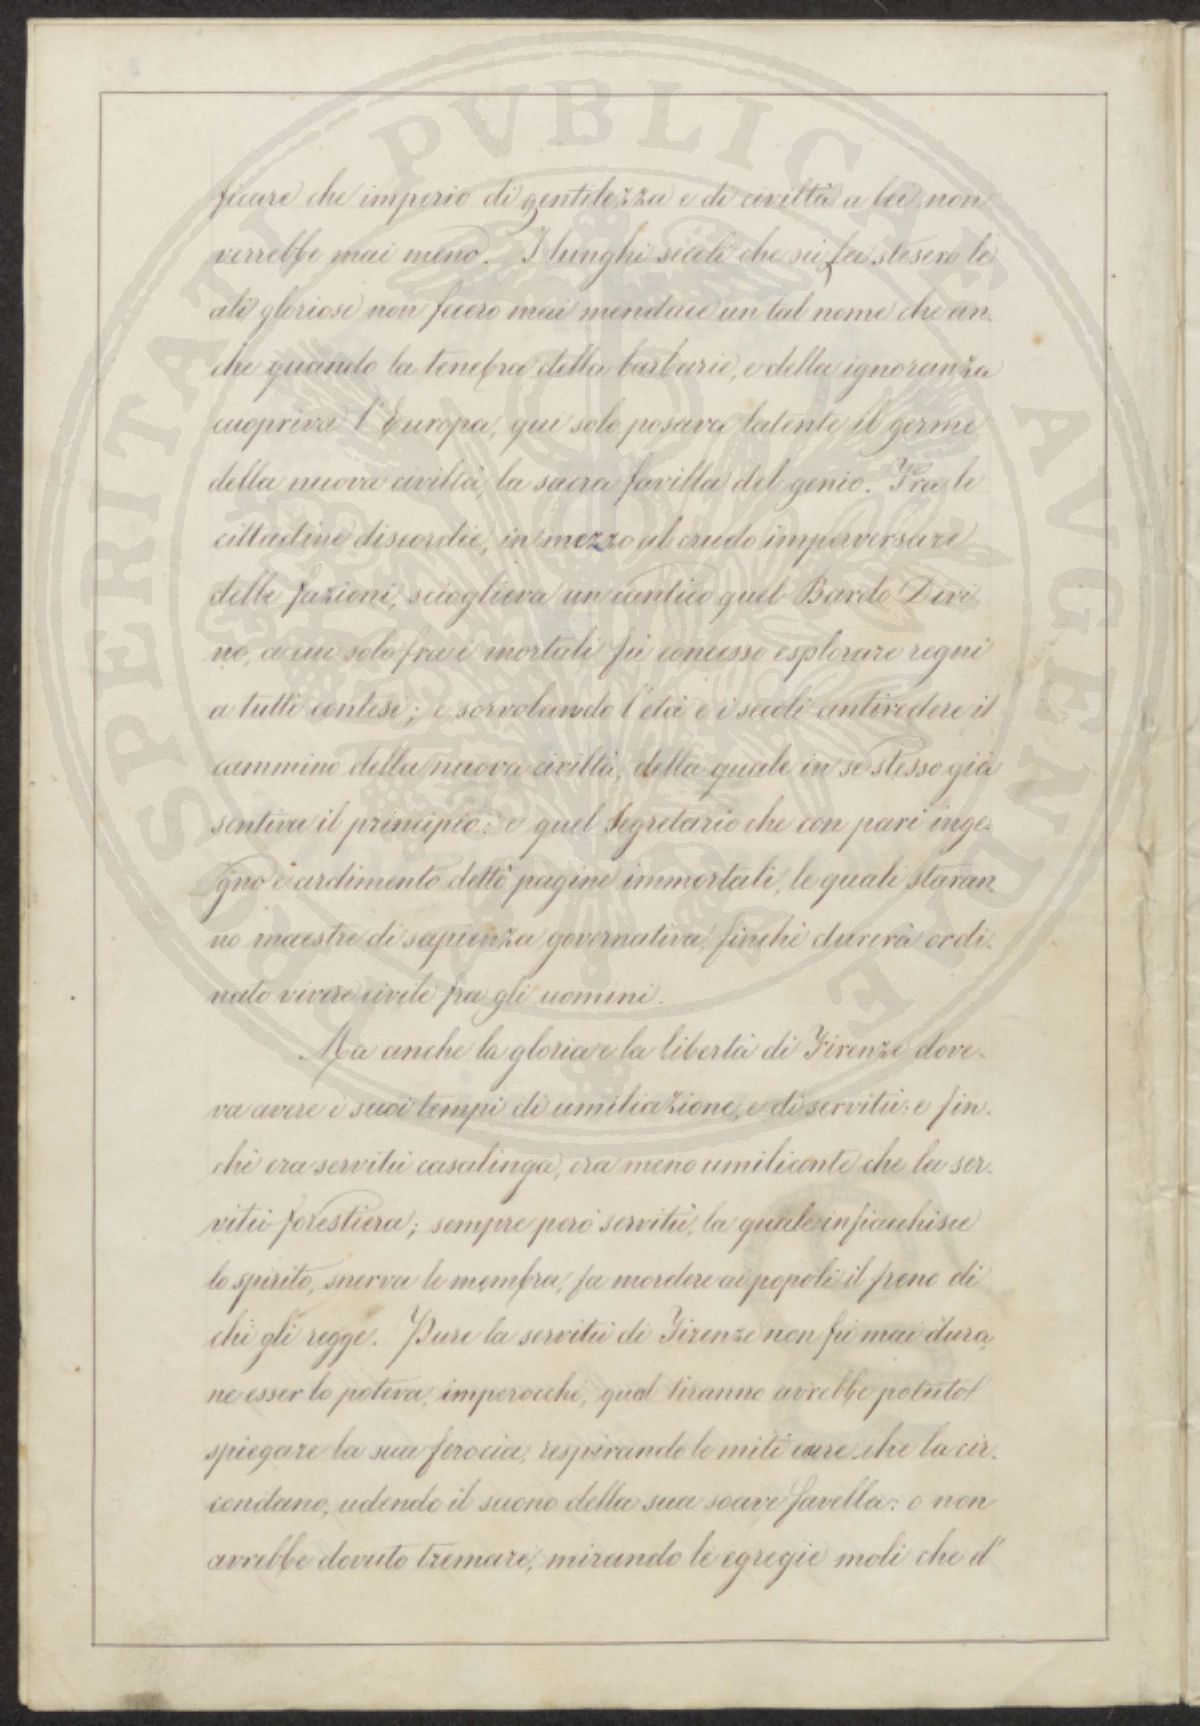 ficare che imperio di gentilezza e di civiltà a lei non
verrebbe mai meno. I lunghi secoli che su lei stesero le
ali gloriose non fecero mai mendace un tal nome che an-
che quando la tenebra della barbarie, e della ignoranza
cuopriva l'Europa, qui solo posava latente il germe
della nuova civiltà, la sacra favilla del genio. Fra le
cittadine discordie, in mezzo al crudo imperversare
delle fazioni, scioglieva un cantico quel Bardo Divi-
no, a cui solo fra i mortali fù concesso esplorare regni
a tutti contesi; e sorvolando l'età e i secoli antivedere il
cammino della nuova civiltà, della quale in se stesso già
sentiva il principio: e quel Segretario che con pari inge-
gno e ardimento dettò pagine immortali, le quali staran-
no maestre di sapienza governativa, finchè durerà ordi-
nato vivere civile fra gli uomini.
Ma anche la gloria e la libertà di Firenze dove-
va avere i suoi tempi di umiliazione, e di servitù: e fin-
chè era servitù casalinga, era meno umiliante che la ser-
vitù forestiera; sempre però servitù, la quale infiacchisce
lo spirito, snerva le membra, fa mordere ai popoli il freno di
chi gli regge. Pure la servitù di Firenze non fù mai dura,
ne esser lo poteva, imperocchè, qual tiranno avrebbe potuto
spiegare la sua ferocia, respirando le miti aure che la cir-
condano, udendo il suono della sua soave favella: o non
avrebbe dovuto tremare, mirando le egregie moli che d'
PROSPERITATI PVBLICAE AVGENDAE